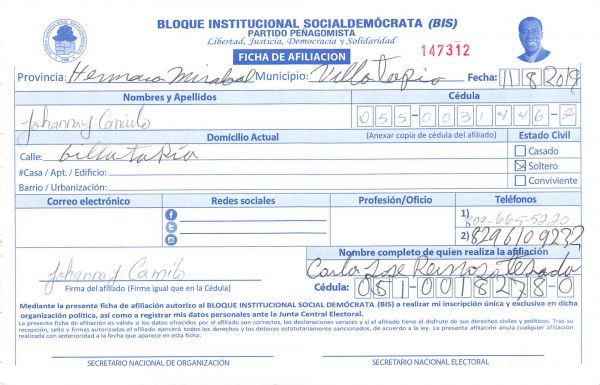 BLOQUE INSTITUCIONAL SOCIALDEMÓCRATA (BIS)
PARTIDO PEÑAGOMISTA
Libertad, Justicia, Democracia y Solidaridad
FICHA DE AFILIACION
147312
Provincia: Hermana Mirabal Municipio: Villa Tapia Fecha: 11/8/2019
Nombres y Apellidos Cédula
Johannay Camilo 055-0031446-2
Domicilio Actual (Anexar copia de cédula del afiliado) Estado Civil
Calle: billa tapia Casado
#Casa / Apt. / Edificio: Soltero
Barrio / Urbanización: Conviviente
Correo electrónico Redes sociales Profesión/Oficio Teléfonos
1) 809-665-5220
2) 829 610 9232
Nombre completo de quien realiza la afiliación
Johannay Camilo Carlos Jose
Firma del afiliado (Firme igual que en la Cédula) Cédula: 051-0018278-0
Mediante la presente ficha de afiliación autorizo al BLOQUE INSTITUCIONAL SOCIAL DEMÓCRATA (BIS) a realizar mi inscripción única y exclusiva en dicha
organización política, así como a registrar mis datos personales ante la Junta Central Electoral.
La presente ficha de afiliación es válida si los datos ofrecidos por el afiliado son correctos, las declaraciones veraces y si el afiliado tiene el disfrute de sus derechos civiles y políticos. Tras su
recepción, sello y firmas autorizadas el afiliado ejercerá todos los derechos y los deberes estatutariamente sancionados, de acuerdo a la ley. La presente afiliación anula cualquier afiliación
realizada con anterioridad a la fecha que aparece en esta ficha.
SECRETARIO NACIONAL DE ORGANIZACIÓN SECRETARIO NACIONAL ELECTORAL